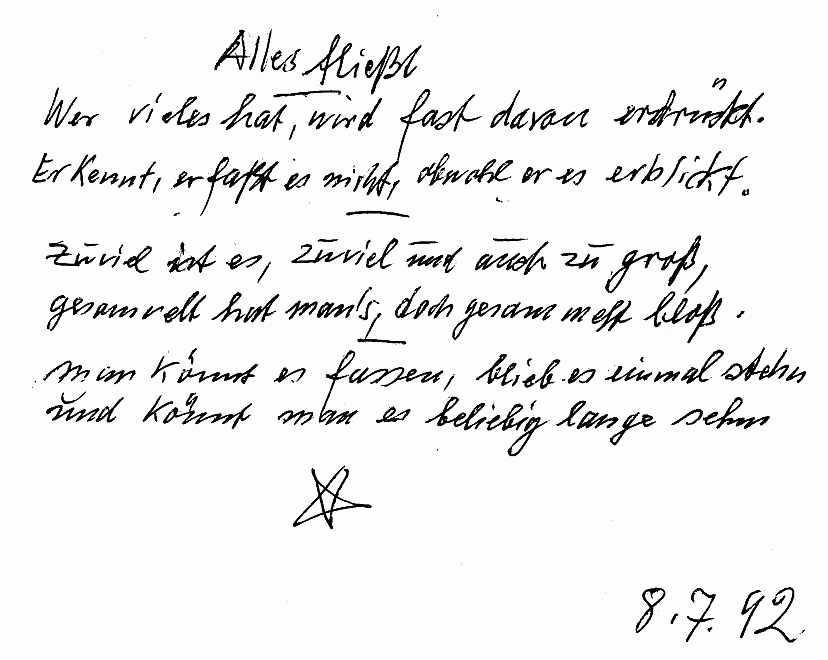 Alles fließt
Wer vieles hat, wird fast davon erdrückt.
Er kennt, er faßt es nicht, obwohl er es erblickt.
Zuviel ist es, zuviel und auch zu groß,
gesammelt hat man's, doch gesammelt bloß.
man könnt es fassen, blieb es einmal stehn
und könnt man es beliebig lange sehn
8.7.92.